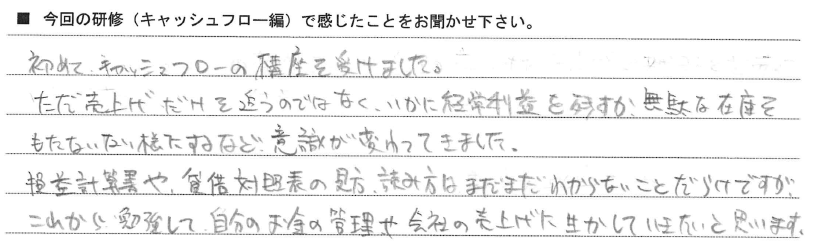 ■ 今回の研修（キャッシュフロー編）で感じたことをお聞かせ下さい。
初めて、キャッシュフローの講座を受けました。
ただ売上げだけを追うのではなく、いかに経常利益を残すか、無駄な在庫を
もたないない様にするなど、意識が変わってきました。
損益計算書や、貸借対照表の見方、読み方はまだまだわからないことだらけですが、
これから、勉強して、自分のお金の管理や会社の売上げに生かしていきたいと思います。